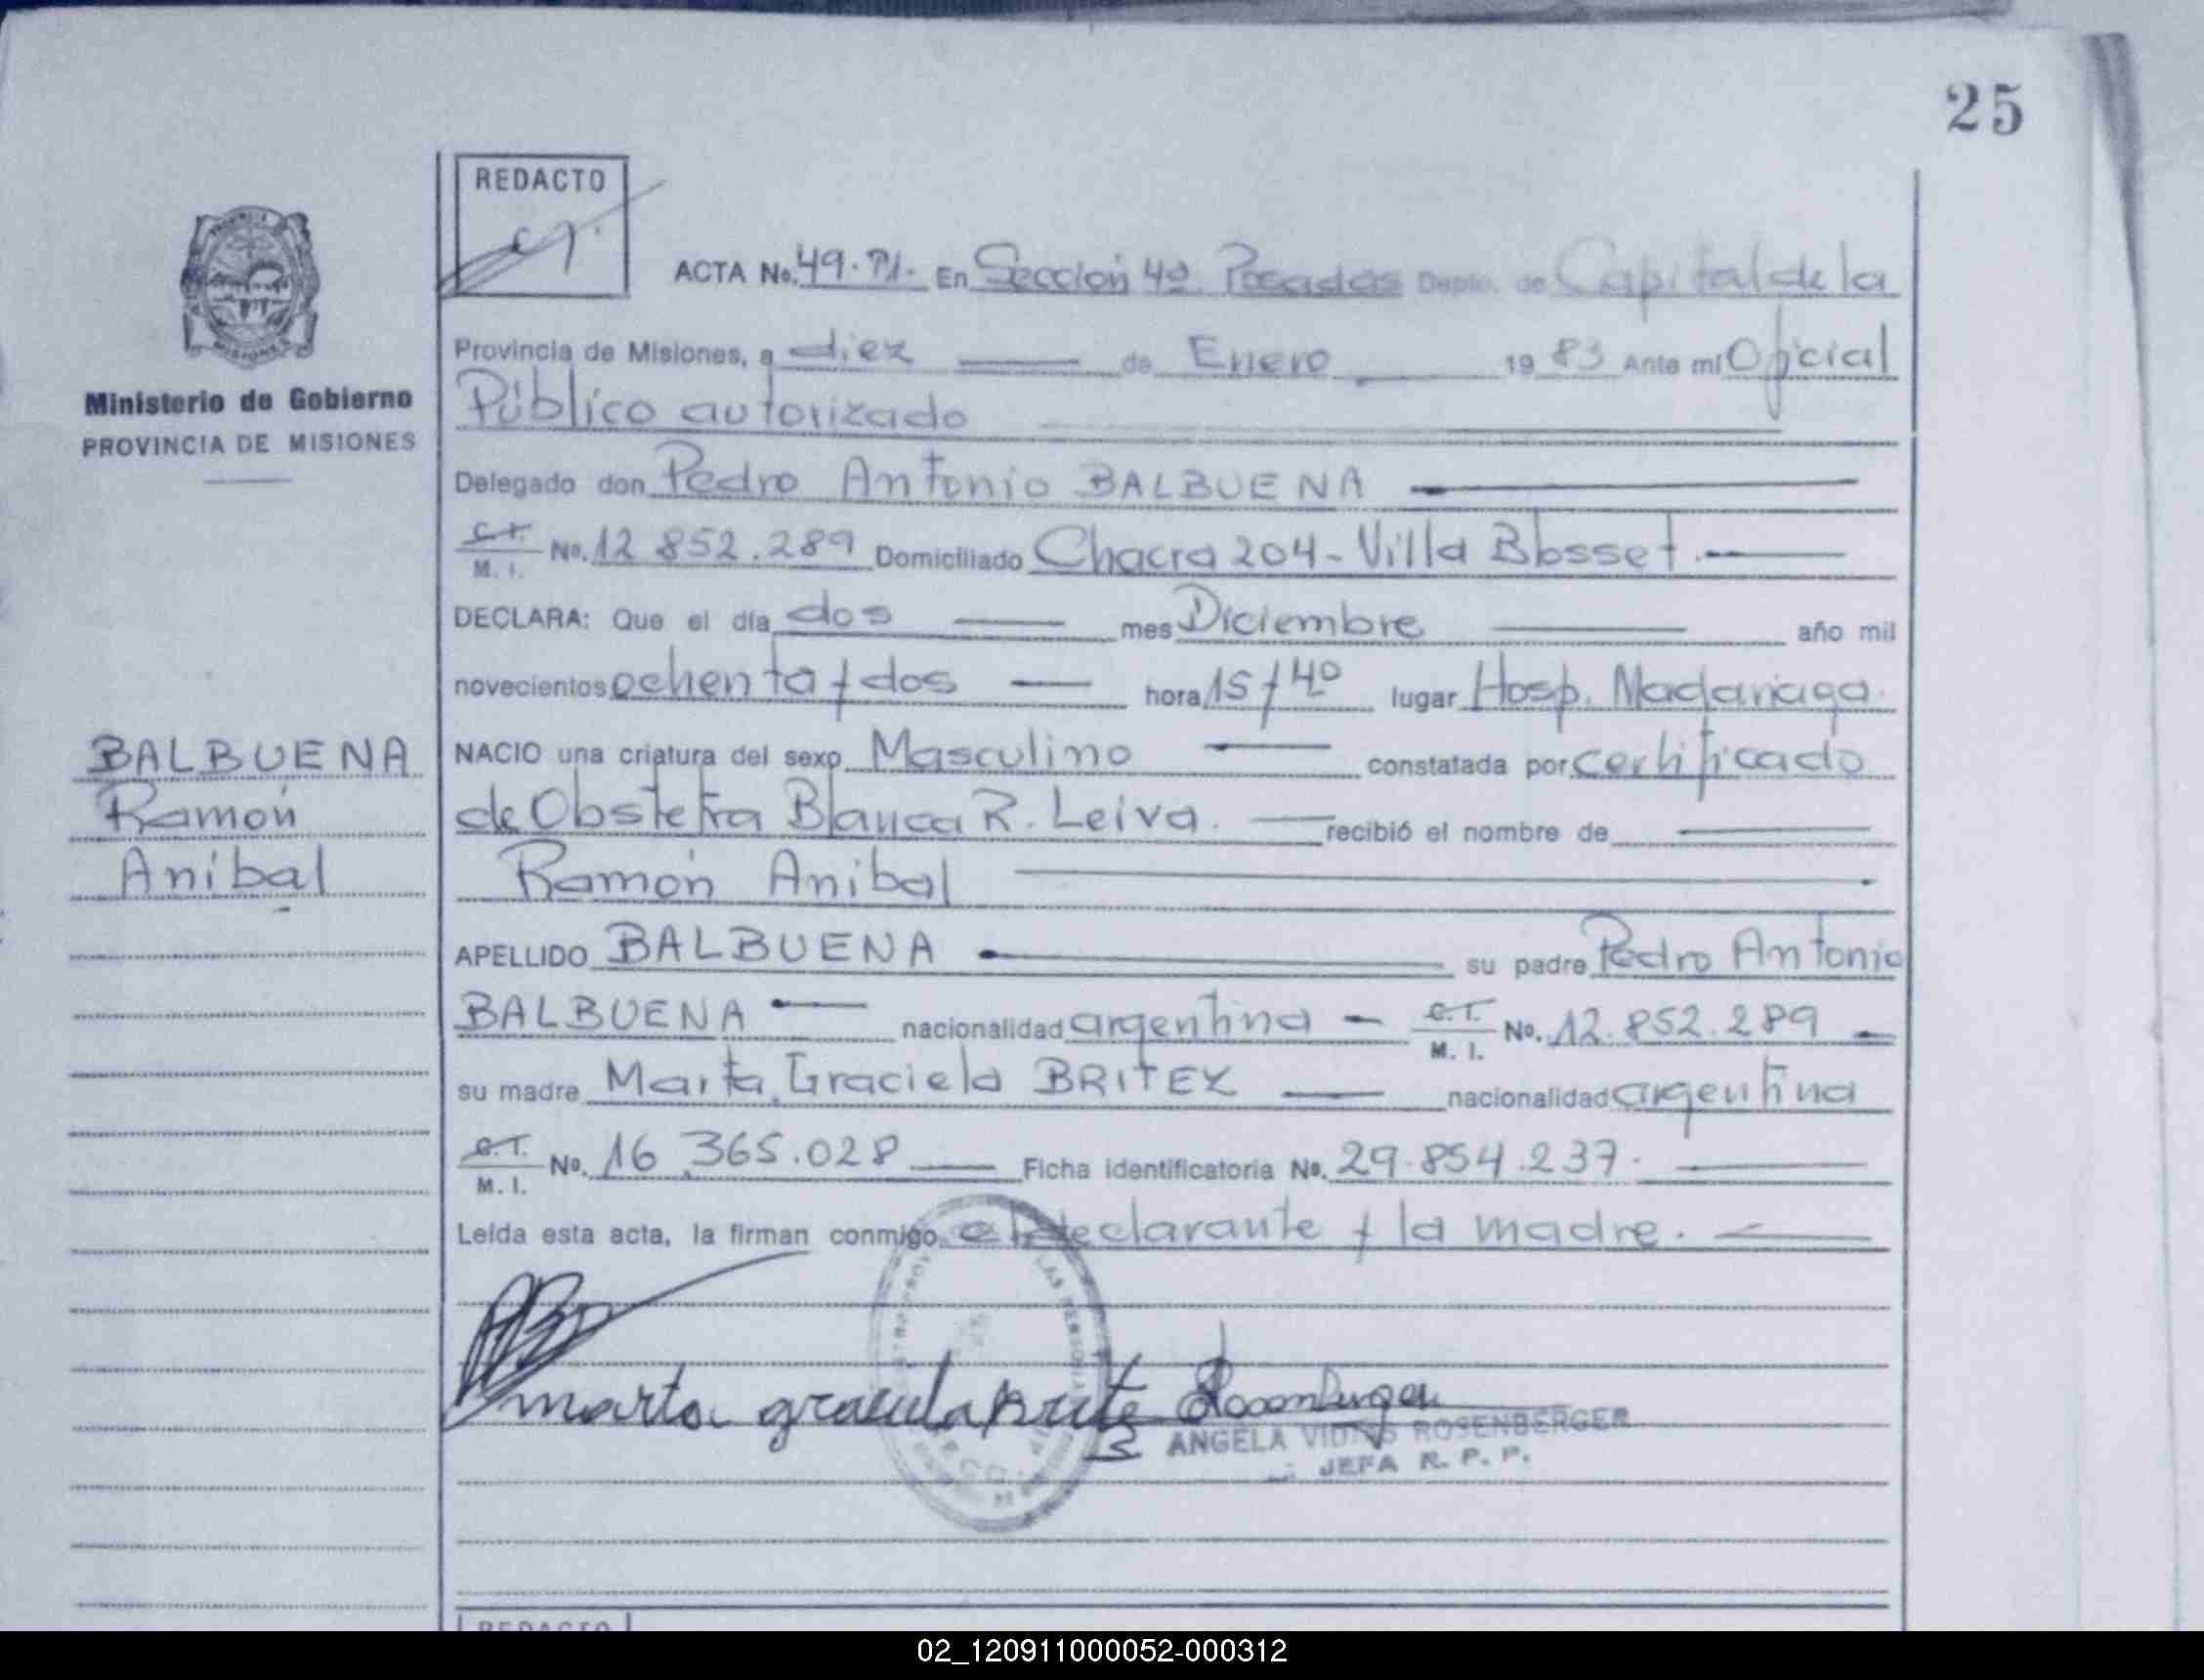 25
REDACTO
ACTA No. 49. En Sección 4ª Posadas Depto. de Capital de la
Provincia de Misiones, a diez de Enero 1983 Ante mi Oficial
Público autorizado
Ministerio de Gobierno
PROVINCIA DE MISIONES
Delegado don Pedro Antonio BALBUENA
C.I. M. I. No. 12 852.289 Domiciliado Chacra 204 - Villa Blosset.
DECLARA: Que el día dos mes Diciembre año mil
novecientos ochenta y dos hora 15 y 40 lugar Hosp. Madariaga.
BALBUENA
Ramón
Aníbal
NACIO una criatura del sexo Masculino constatada por certificado
de Obstetra Blanca R. Leiva. recibió el nombre de
Ramón Aníbal
APELLIDO BALBUENA su padre Pedro Antonio
BALBUENA nacionalidad argentina - C.I. M. I. No. 12.852.289
su madre Marta Graciela BRITEZ nacionalidad argentina
C.I. M. I. No. 16.365.028 Ficha identificatoria No. 29.854.237.
Leída esta acta, la firman conmigo el declarante y la madre.
marta graciela Brite
ANGELA ROSENBERGER
JEFA R. P. P.
REDACTO
02_120911000052-000312